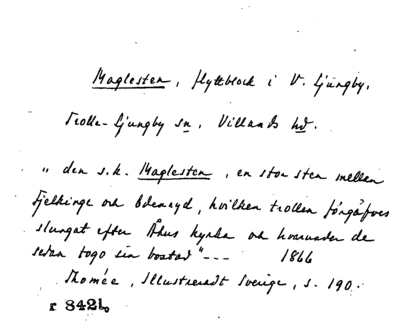 Maglesten, flyttblock i V. Ljungby,
Trolle-Ljungby sn, Villands hd.
"den s.k. Maglesten, en stor sten mellan
Fjelkinge och Ödensyd, hvilken trollen förgäfves
slungat efter Åhus kyrka och hvarunder de
sedan togo sin bostad" --- 1866
Thomée, Illustreradt Sverige, s. 190.
r 8421